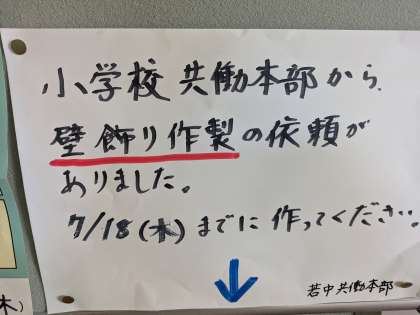 小学校 共働本部から、
壁飾り作製の依頼が
ありました。
7/18(木)までに作ってください。
若中共働本部
木)